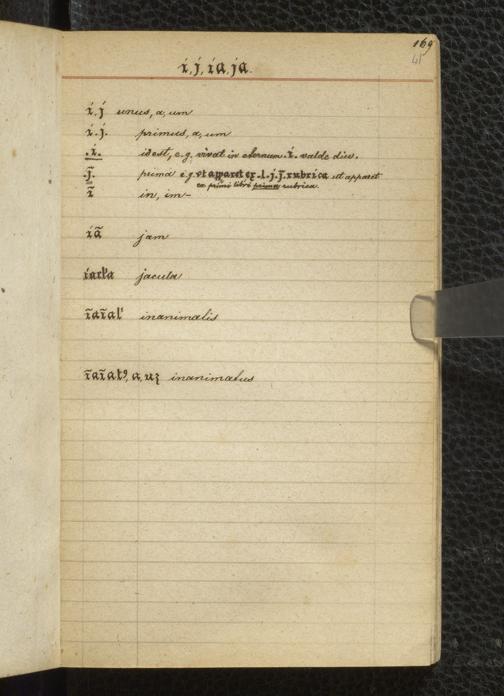 169
41
i, j, ia, ja.
i, j unus, a, um
i. j. primus, a, um
.i. id est, e.g. vivat in eternum .i. valde diu.
.j̃. prima e.g. vt apparet ex .l. j. j̃. rubrica ut apparet
ex primi libri prima rubrica.
ĩ in, im-
iã jam
iacl'a jacula
ĩaĩal' inanimalis
ĩaĩatꝰ, a, uʒ inanimatus